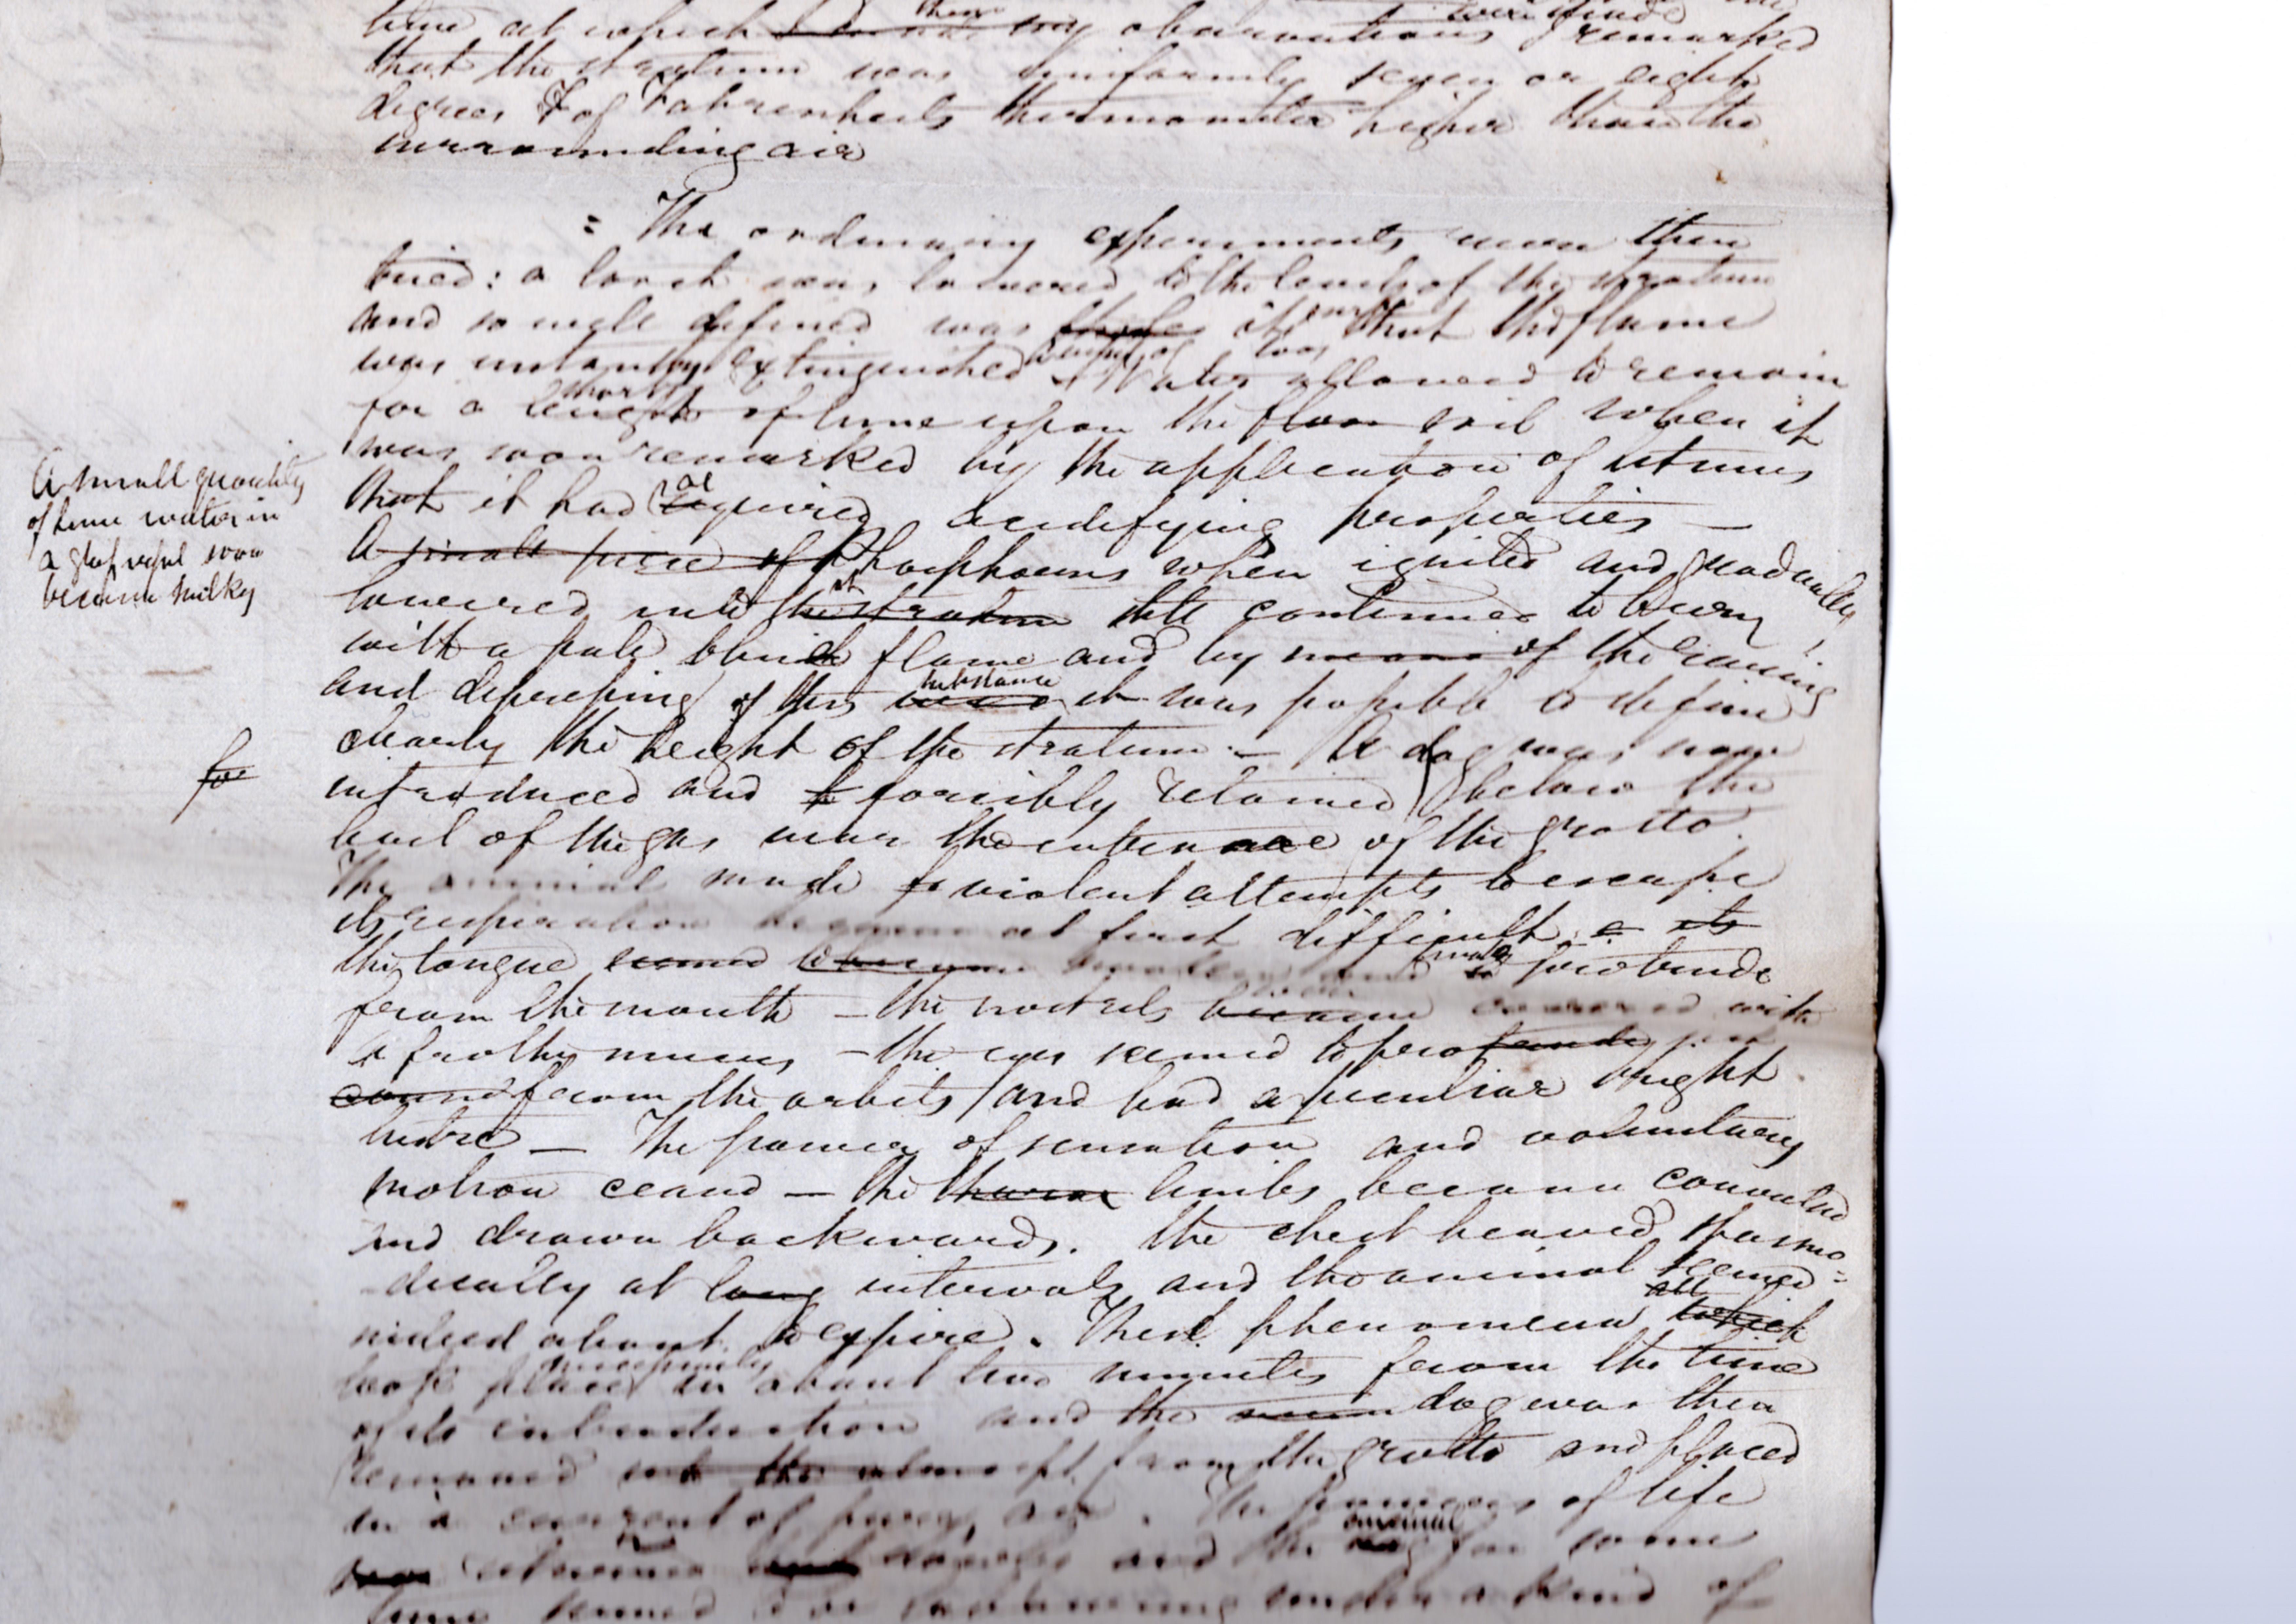 time at which these my observations were made I remarked
that the stratum was uniformly seven or eight
degrees F of Fahrenheits thermometer higher than the
surrounding air
= The ordinary experiments were then
tried: a torch was lowered to the level of the stratum
and so well defined was it that the flame
was instantly extinguished A vessel of Water was allowed to remain
for a short length of time upon the floor soil when it
was soon remarked by the application of litmus
that it had acquired acidifying properties —
A small quantity
of lime water in
a glass vessel soon
became milky
A small piece of Phosphorus when ignited and gradually
lowered into the stratum it still continued to burn
with a pale bluish flame and by means of the raising
and depressing of this substance it was possible to define
clearly the height of the stratum. — A dog was now
for
introduced and f forcibly retained below the
level of the gas near the entrance of the grotto.
The animal made violent attempts to escape
its respiration became at first difficult: its
the tongue seemed to become protrude
from the mouth — the nostrils became covered with
a frothy mucus — the eyes seemed to protrude
from the orbits and had a peculiar bright
lustre — The power of sensation and voluntary
motion ceased — the limbs became convulsed
and drawn backwards. the chest heaved spasmo=
-dically at long intervals and the animal seemed
indeed about to expire. These phenomena all which
took place successively in about two minutes from the time
of its introduction and the dog was then
removed into the atmosph from the grotto and placed
in a current of pure air. The powers of life
returned and the animal dog for some
time seemed to be labouring under a kind of